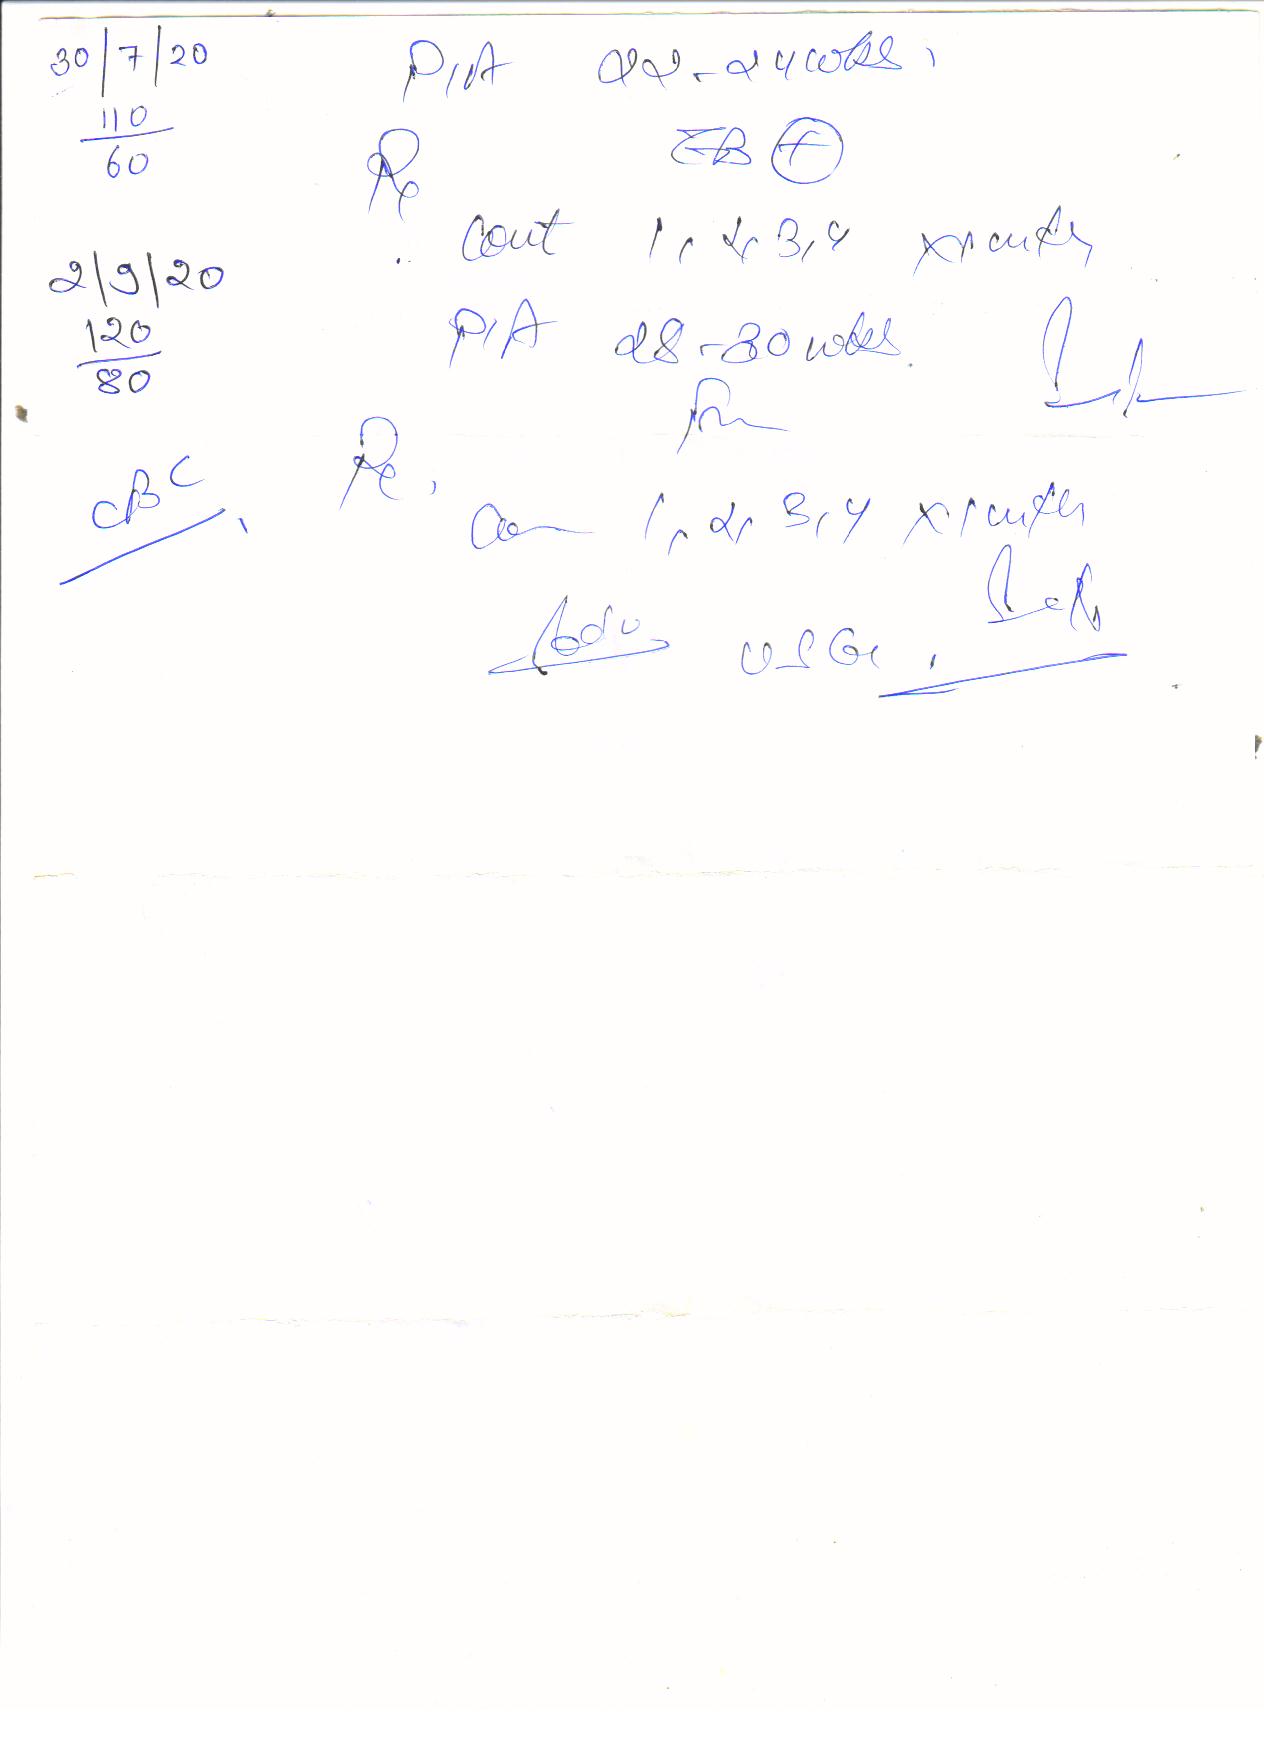 30/7/20
110
60
P/A 22-24 wks,
EB +
Rx
Cont 1, 2, 3, 4 x 1 mnth
2/9/20
120
80
P/A 28-30 wks.
CBC
Rx,
1, 2, 3, 4 x 1 mnth
Adv, USG.